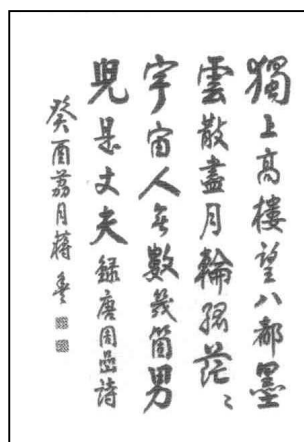 獨上高樓望八都墨
雲散盡月輪孤茫〻
宇宙人無數幾箇男
兒是丈夫錄唐周曇詩
癸酉荔月蔣